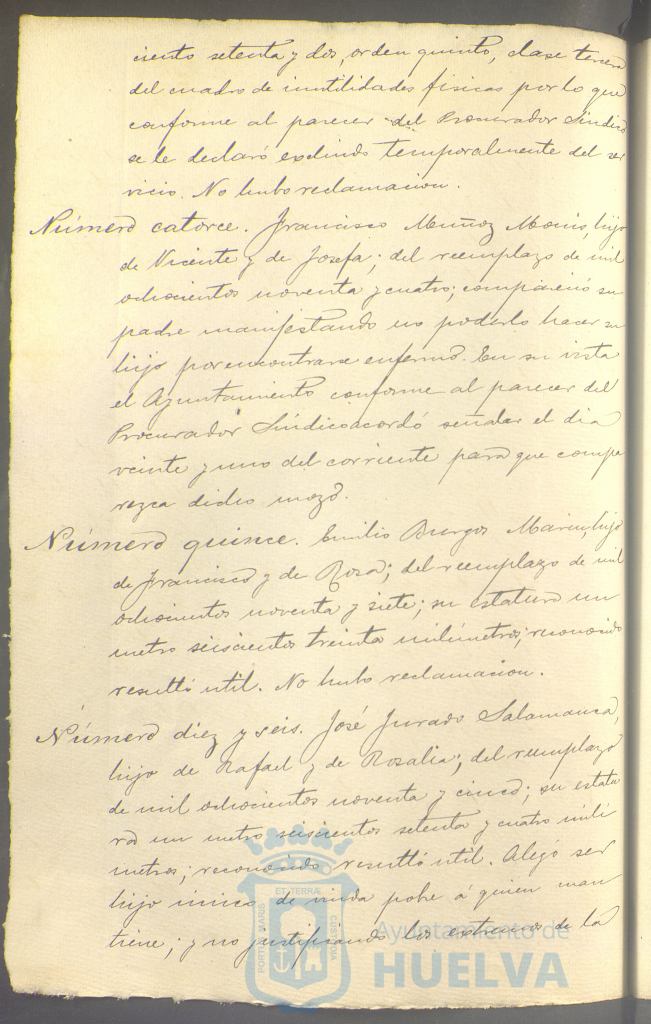 ciento setenta y dos, orden quinto, clase tercera
del cuadro de inutilidades físicas por lo que
conforme al parecer del Procurador Síndico
se le declaró excluido temporalmente del ser
vicio. No hubo reclamacion.
Número catorce. Francisco Muñoz Monis, hijo
de Vicente y de Josefa; del reemplazo de mil
ochocientos noventa y cuatro; compareció su
padre manifestando no poderlo hacer su
hijo por encontrarse enfermo. En su vista
el Ayuntamiento conforme al parecer del
Procurador Síndico acordó señalar el dia
veinte y uno del corriente para que compa
rezca dicho mozo.
Número quince. Emilio Burgos Marin, hijo
de Francisco y de Rosa; del reemplazo de mil
ochocientos noventa y siete; su estatura un
metro seiscientos treinta milímetros; reconocido
resultó util. No hubo reclamacion.
Número diez y seis. José Jurado Salamanca,
hijo de Rafael y de Rosalia; del reemplazo
de mil ochocientos noventa y cinco; su estatu
ra un metro seiscientos setenta y cuatro milí
metros; reconocido resultó util. Alegó ser
hijo único de viuda pobre á quien man
tiene; y no justificando los extremos de la
PORTUS MARIS ET TERRÆ CUSTODIA
Ayuntamiento de
HUELVA